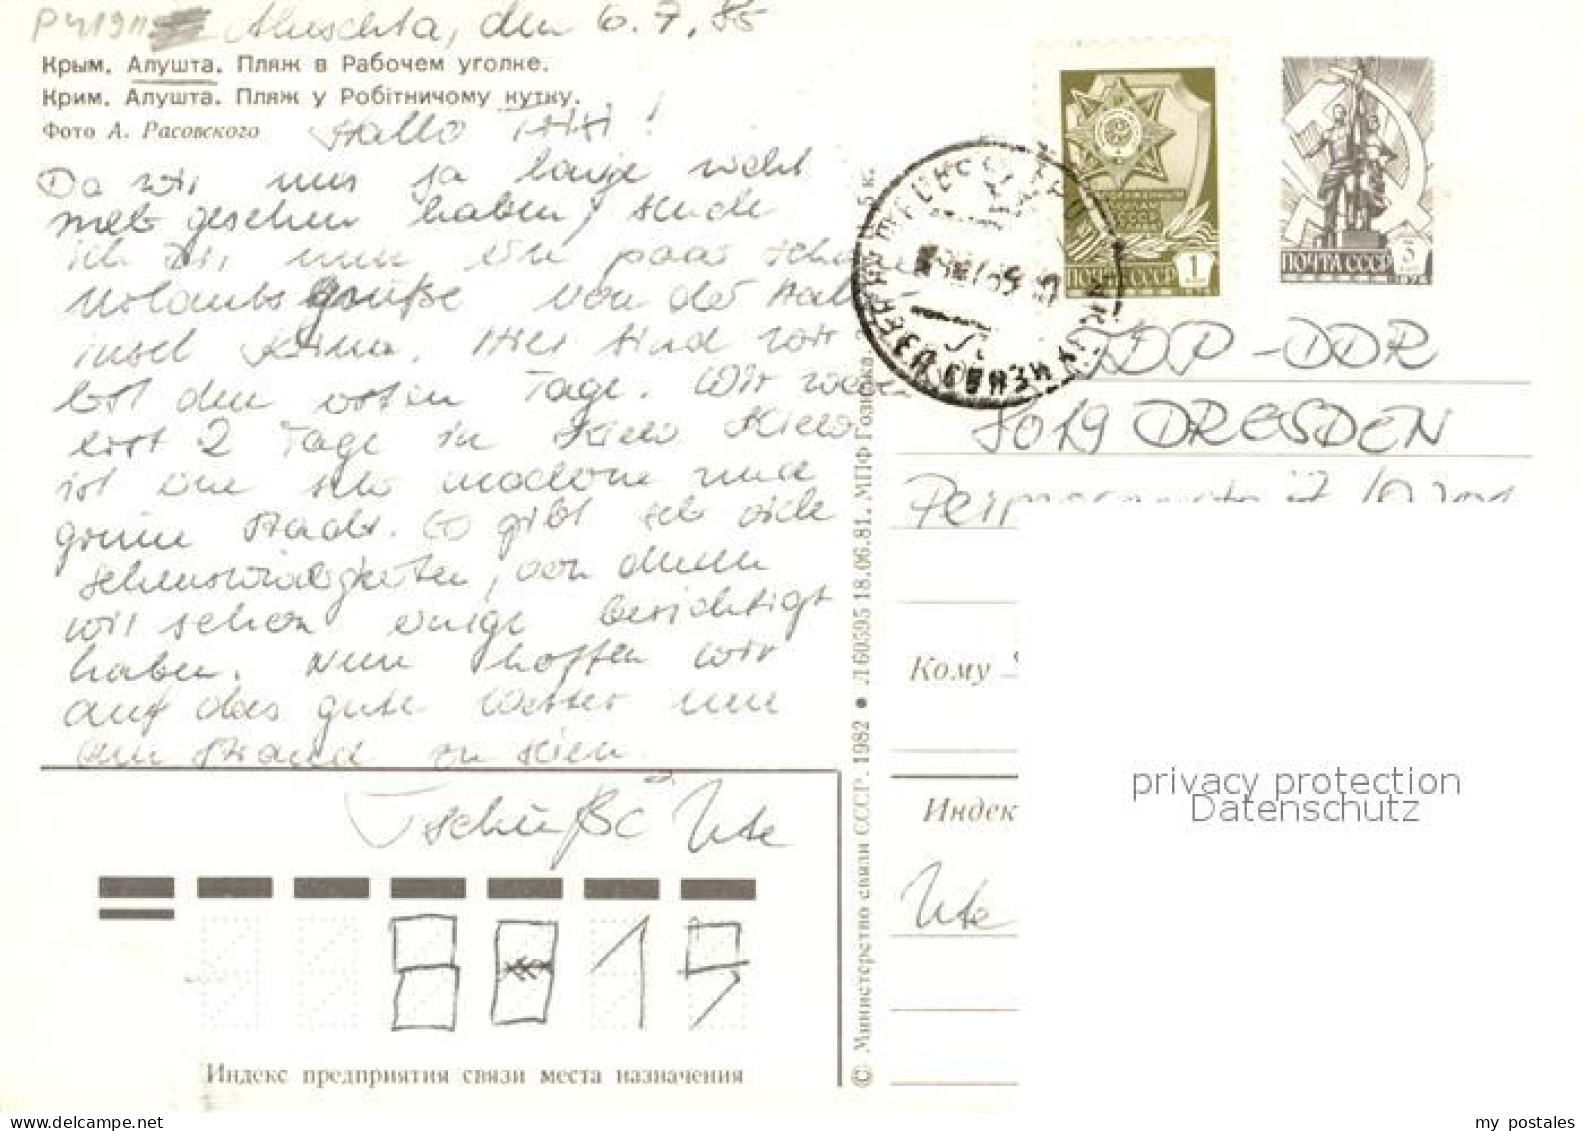 Aluschta, den 6.7.85
Крым. Алушта. Пляж в Рабочем уголке.
Крим. Алушта. Пляж у Робітничому кутку.
Фото А. Расовского
Hallo !
Da wir uns ja lange nicht
mehr gesehen haben, sende
ich Dir nun ein paar
Urlaubsgrüße von der Halb
insel Krim. Hier sind wir
erst den ersten Tag. Wir waren
erst 2 Tage in Kiew Kiew
ist eine sehr moderne und
grüne Stadt. Es gibt sehr viele
Sehenswürdigkeiten, von denen
wir schon einige besichtigt
haben. Nun hoffen wir
auf das gute Wetter um
am Strand zu sein.
Tschüßc Ute
8019
Индекс предприятия связи места назначения
© Министерство связи СССР. 1982 • Л 60595 18.06.81. МПФ Гознака.
5 к.
ПОЧТА СССР 1
ПОЧТА СССР 3
DDR
8019 DRESDEN
Кому
Индекс
Ute
privacy protection
Datenschutz
my postales